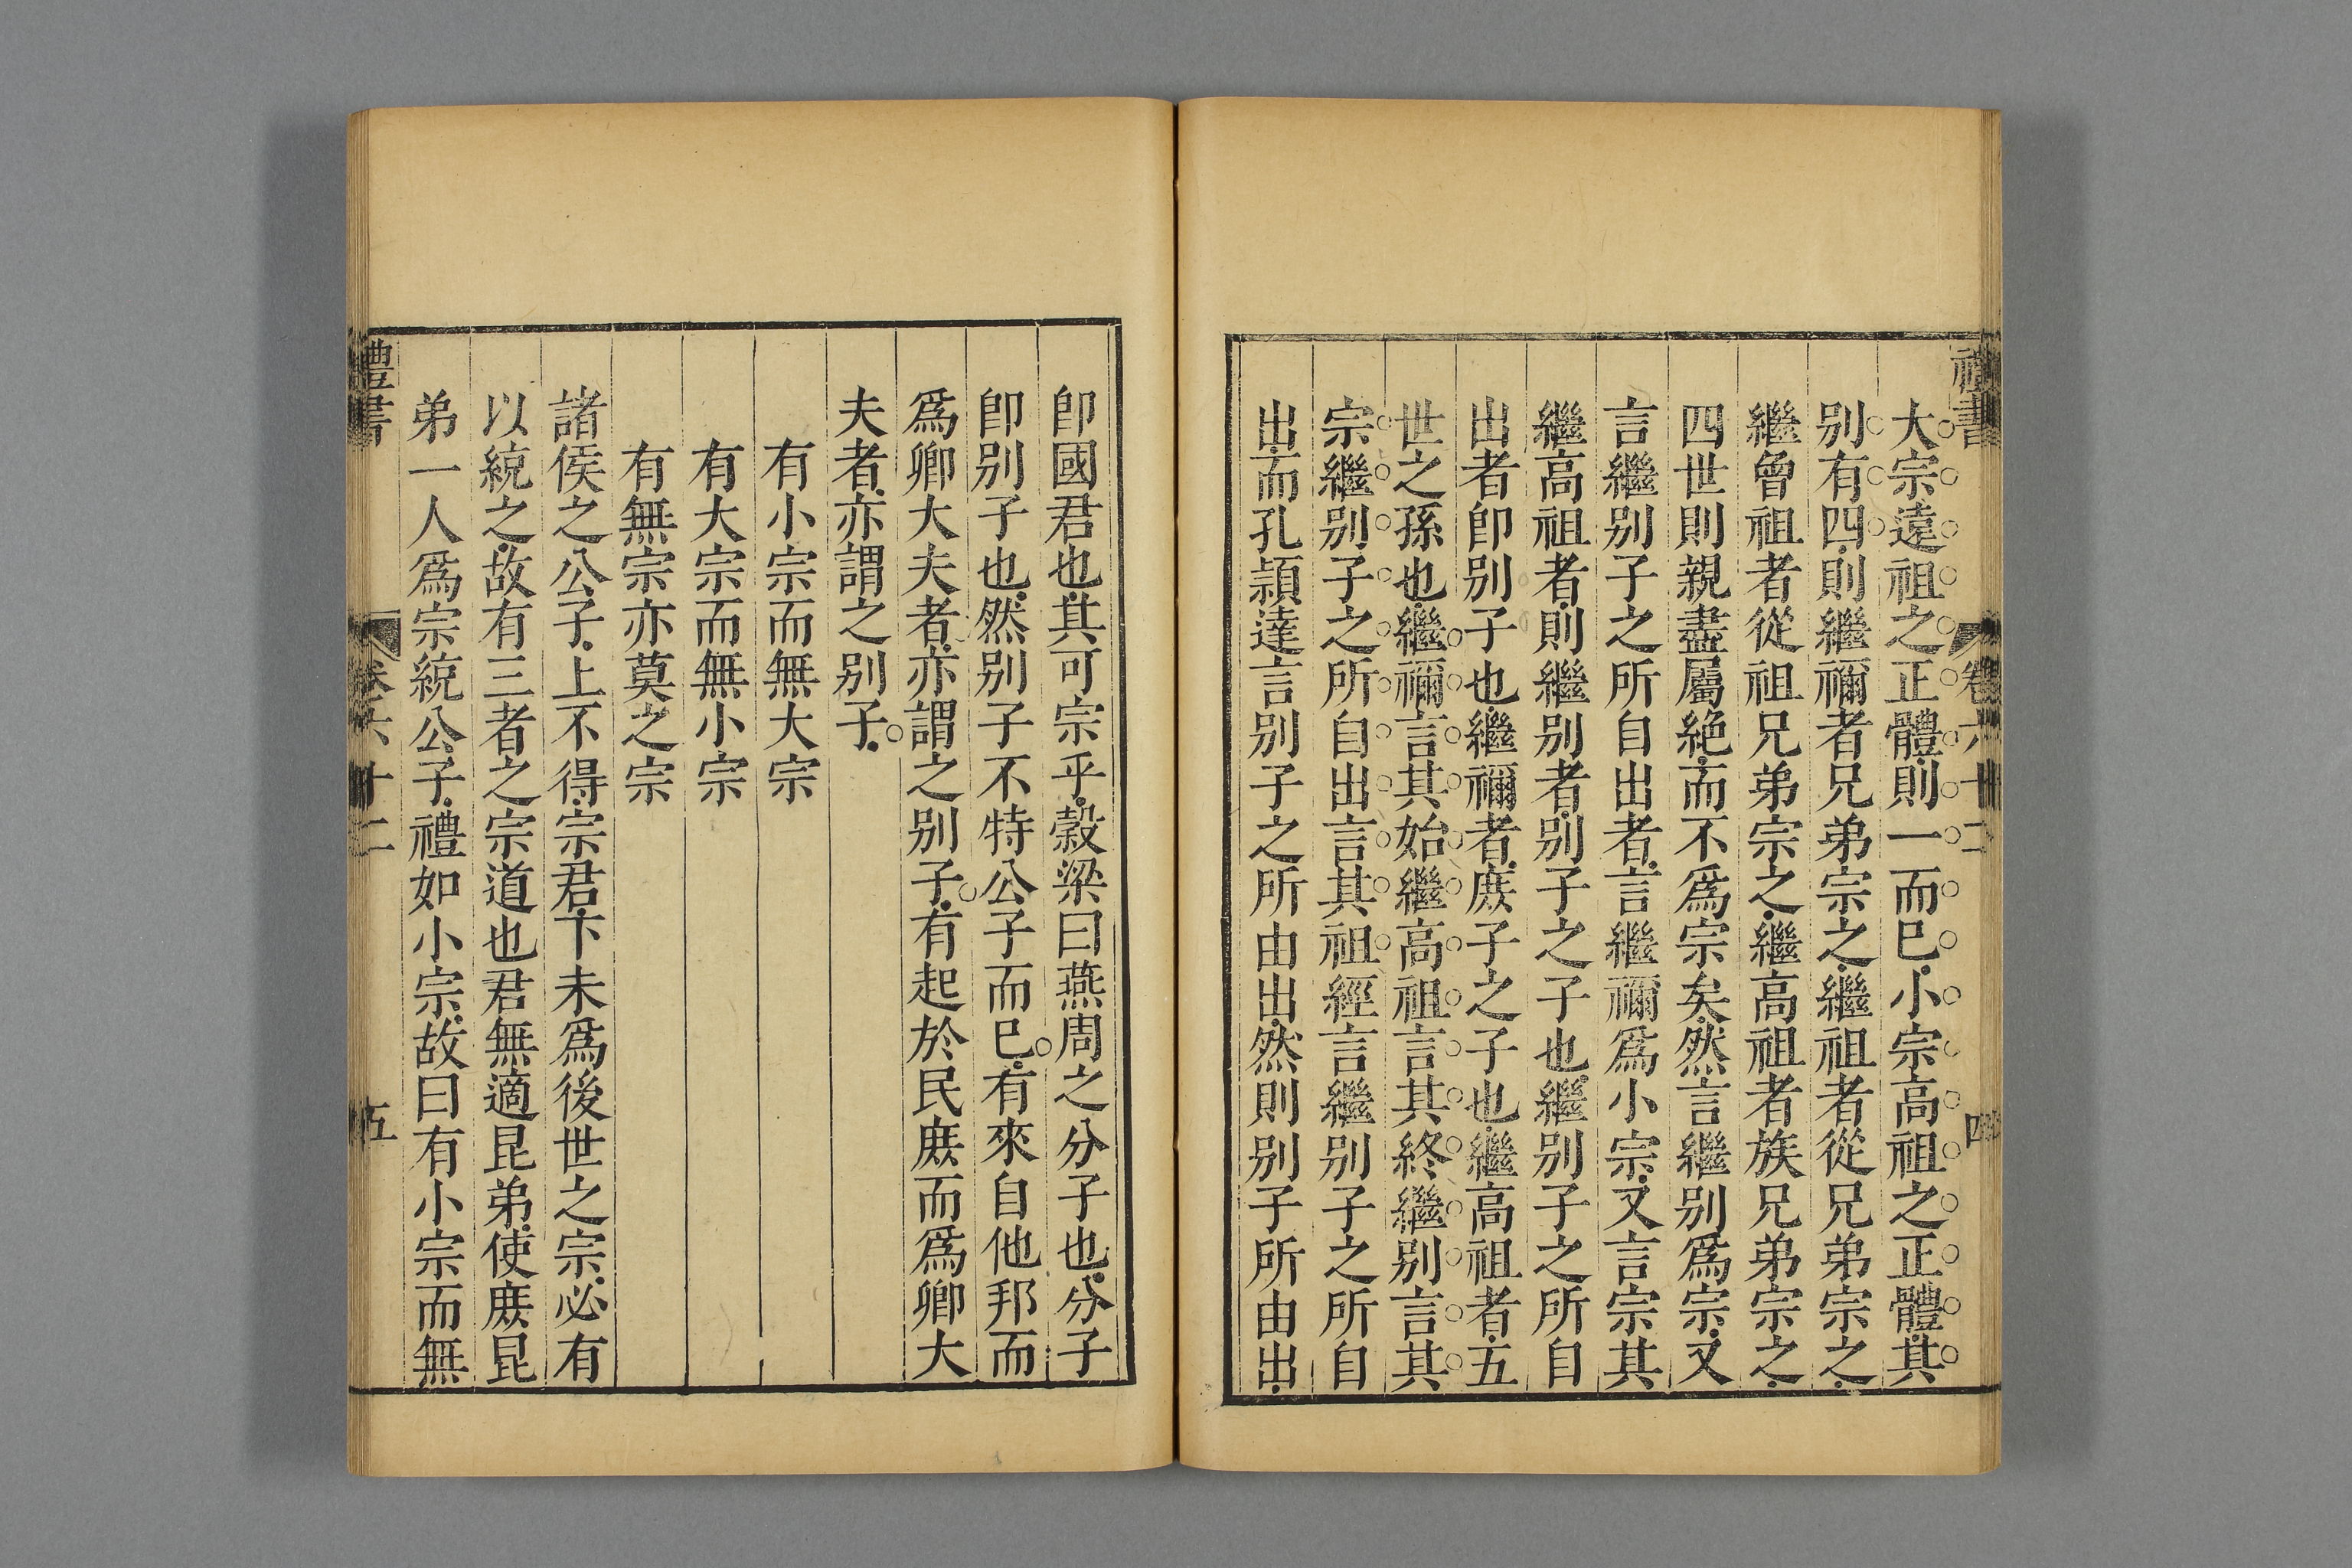 禮書 卷六十二 四
大宗遠祖之正體則一而已小宗高祖之正體其
别有四則繼禰者兄弟宗之繼祖者從兄弟宗之
繼曾祖者從祖兄弟宗之繼高祖者族兄弟宗之
四世則親盡屬絶而不爲宗矣然言繼别爲宗又
言繼别子之所自出者言繼禰爲小宗又言宗其
繼高祖者則繼别者别子之子也繼别子之所自
出者卽别子也繼禰者庶子之子也繼高祖者五
世之孫也繼禰言其始繼高祖言其終繼别言其
宗繼别子之所自出言其祖經言繼别子之所自
出而孔頴達言别子之所由出然則别子所由出
卽國君也其可宗乎穀梁曰燕周之分子也分子
卽别子也然别子不特公子而已有來自他邦而
爲卿大夫者亦謂之别子有起於民庶而爲卿大
夫者亦謂之别子
有小宗而無大宗
有大宗而無小宗
有無宗亦莫之宗
諸侯之公子上不得宗君下未爲後世之宗必有
以統之故有三者之宗道也君無適昆弟使庶昆
弟一人爲宗統公子禮如小宗故曰有小宗而無
禮書 卷六十二 五